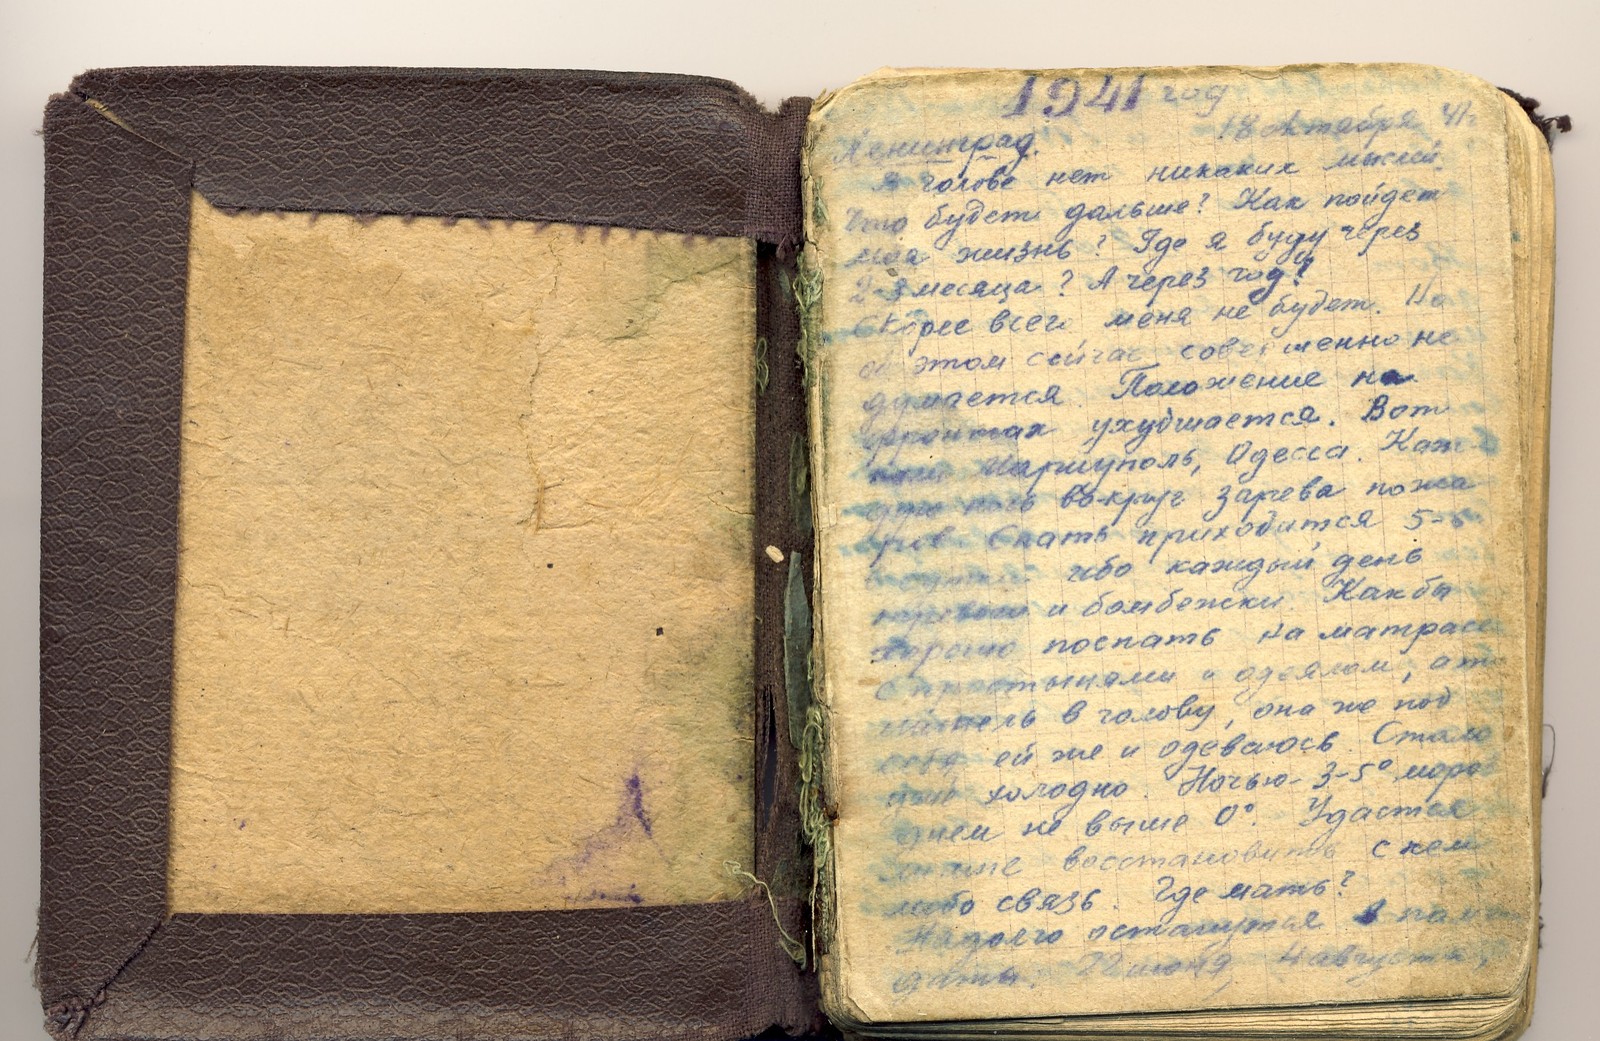 1941 год
Ленинград. 18 октября 41г.
В голове нет никаких мыслей.
Что будет дальше? Как пойдет
моя жизнь? Где я буду через
2-3 месяца? А через год?
Скорее всего меня не будет. Но
об этом сейчас совершенно не
думается. Положение на
фронтах ухудшается. Вот
Мариуполь, Одесса. Каж-
дую ночь вокруг зарева пожа
ров. Спать приходится 5-6
ибо каждый день
тревоги и бомбежки. Как бы
хорошо поспать на матрасе
с простынями и одеялом, а то
шинель в голову, она же под
себя ей же и одеваюсь. Стало
холодно. Ночью - 3-5° моро
днем не выше 0°. Удастся
восстановить с кем
либо связь. Где мать?
Надолго останутся в памя
даты. 22 июня, 4 августа,